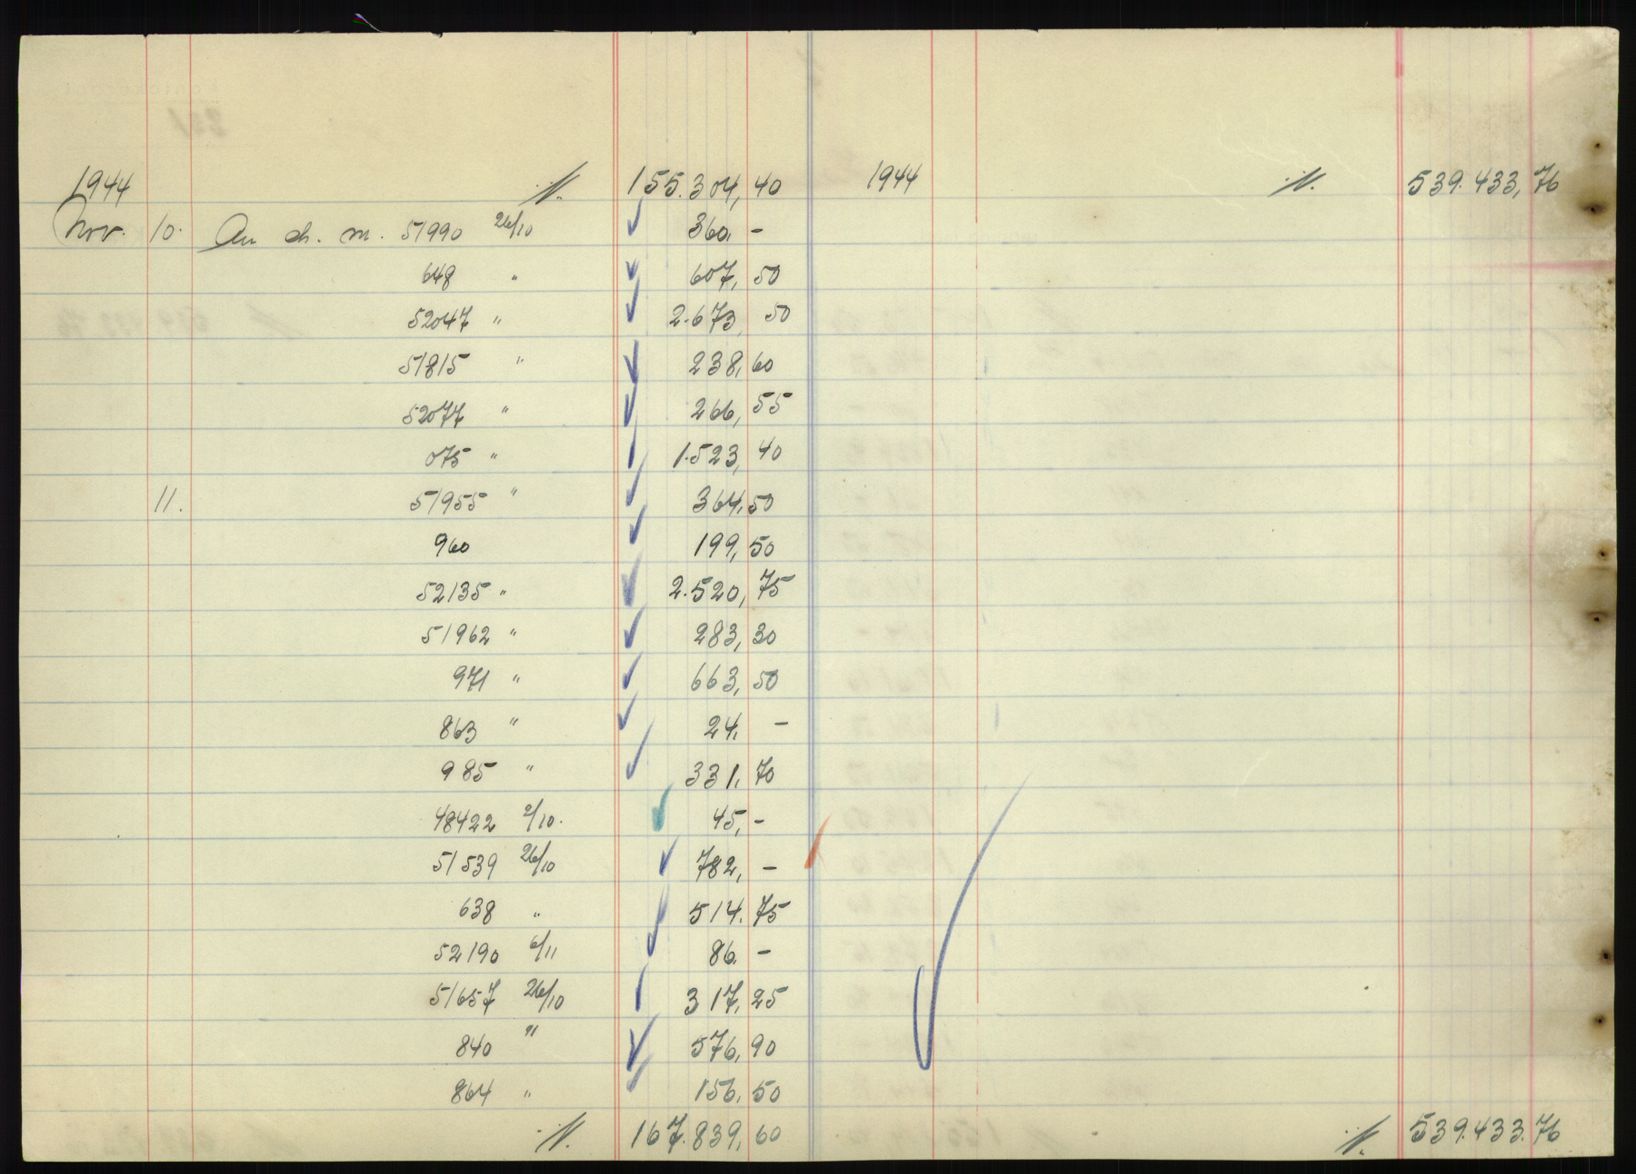 1944 ./. 155.304,40 1944 ./. 539.433,76
Nov. 10. An ch. m. 51990 26/10 360,-
648 " 607,50
52047 " 2.673,50
51815 " 238,60
52077 " 266,55
075 " 1.523,40
11. 51955 " 364,50
960 199,50
52135 " 2.520,75
51962 " 283,30
971 " 663,50
863 " 24,-
985 " 331,70
48422 2/10. 45,-
51539 26/10 782,-
638 " 514.75
52190 6/11 86.-
51657 26/10 317,25
840 " 576,90
864 " 156,50
./. 167.839,60 ./. 539.433.76